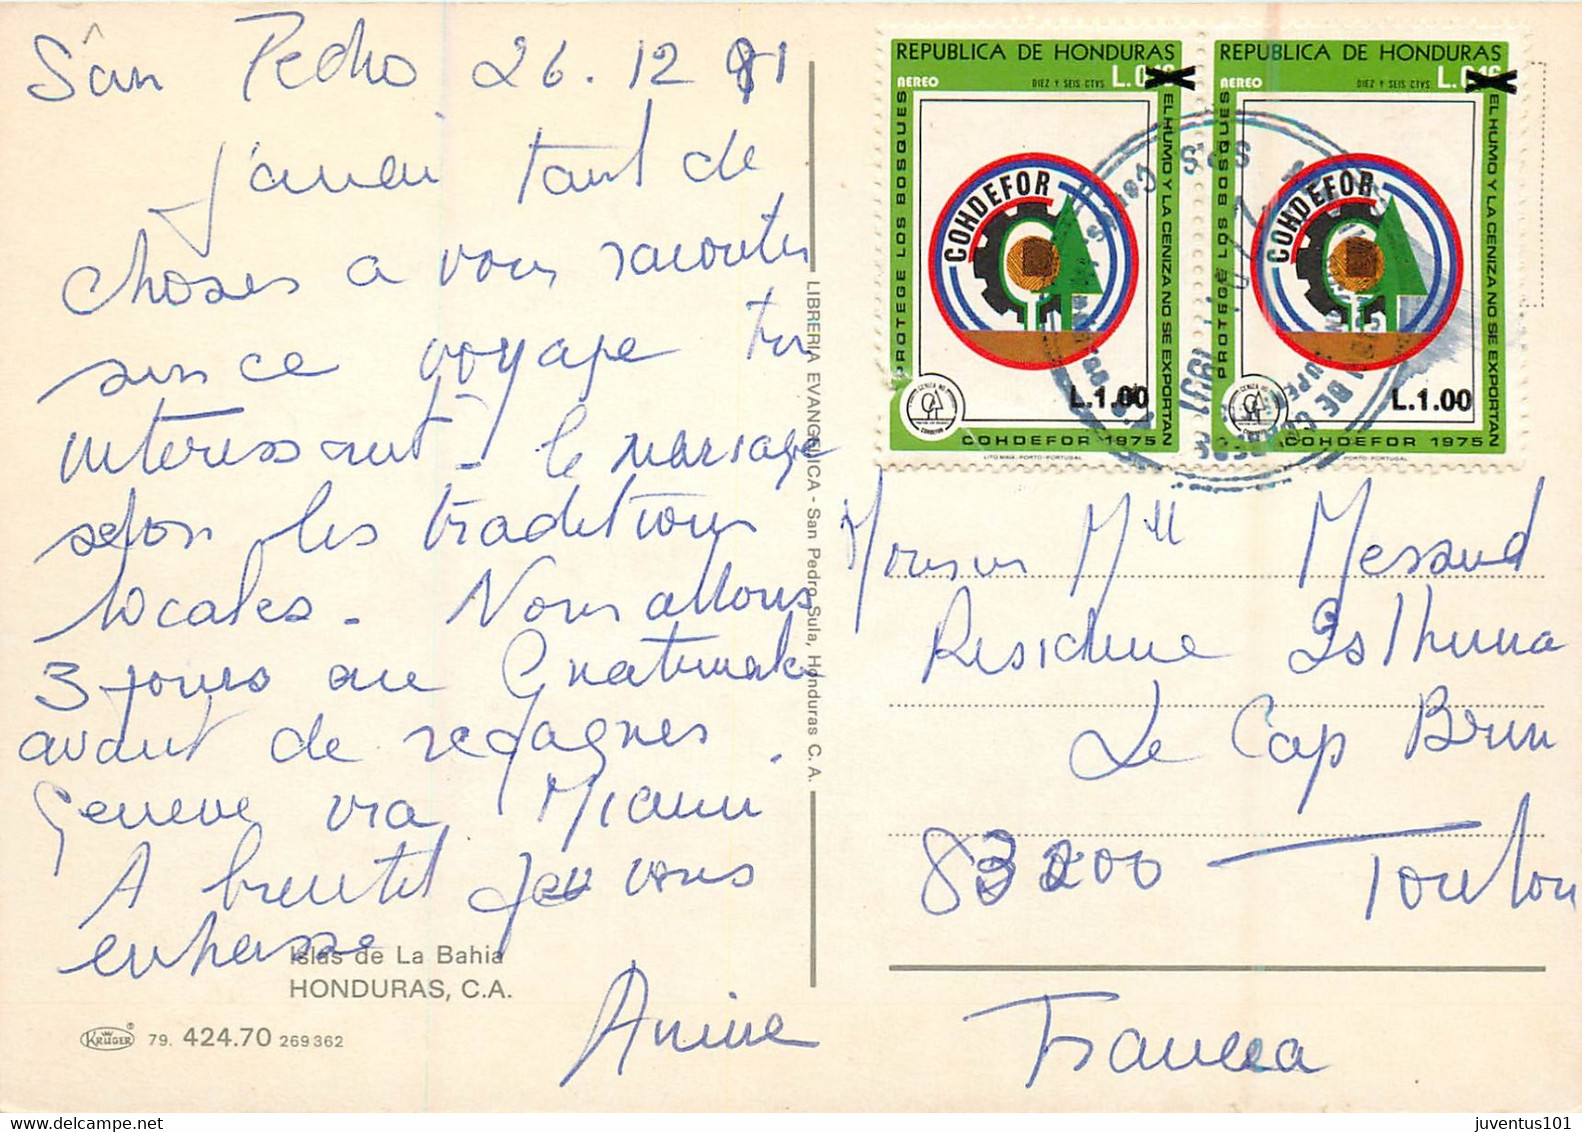 Sân Pedro 26.12 81
J'aurai tant de
choses a vous raconter
since voyage très
interessant - le mariage
selon les traditions
locales - Nous allons
3 jours au Guatemala
avant de regagner
Geneve via Miami
A bientôt je vous
enbrasse
Islas de La Bahia
HONDURAS, C.A.
KRÜGER ® 79. 424.70 269362
LIBRERIA EVANGELICA - San Pedro Sula, Honduras C. A.
REPUBLICA DE HONDURAS
AEREO
DIEZ Y SEIS CTVS
L.0.16
PROTEGE LOS BOSQUES
EL HUMO Y LA CENIZA NO SE EXPORTAN
COHDEFOR
L.1.00
COHDEFOR 1975
LITO MAIA - PORTO - PORTUGAL
REPUBLICA DE HONDURAS
AEREO
DIEZ Y SEIS CTVS
L.0.16
PROTEGE LOS BOSQUES
EL HUMO Y LA CENIZA NO SE EXPORTAN
COHDEFOR
L.1.00
COHDEFOR 1975
PORTO - PORTUGAL
Monsieur Mll Messaud
Residence
Le Cap Brun
83200 - Toulon
Francia
juventus101